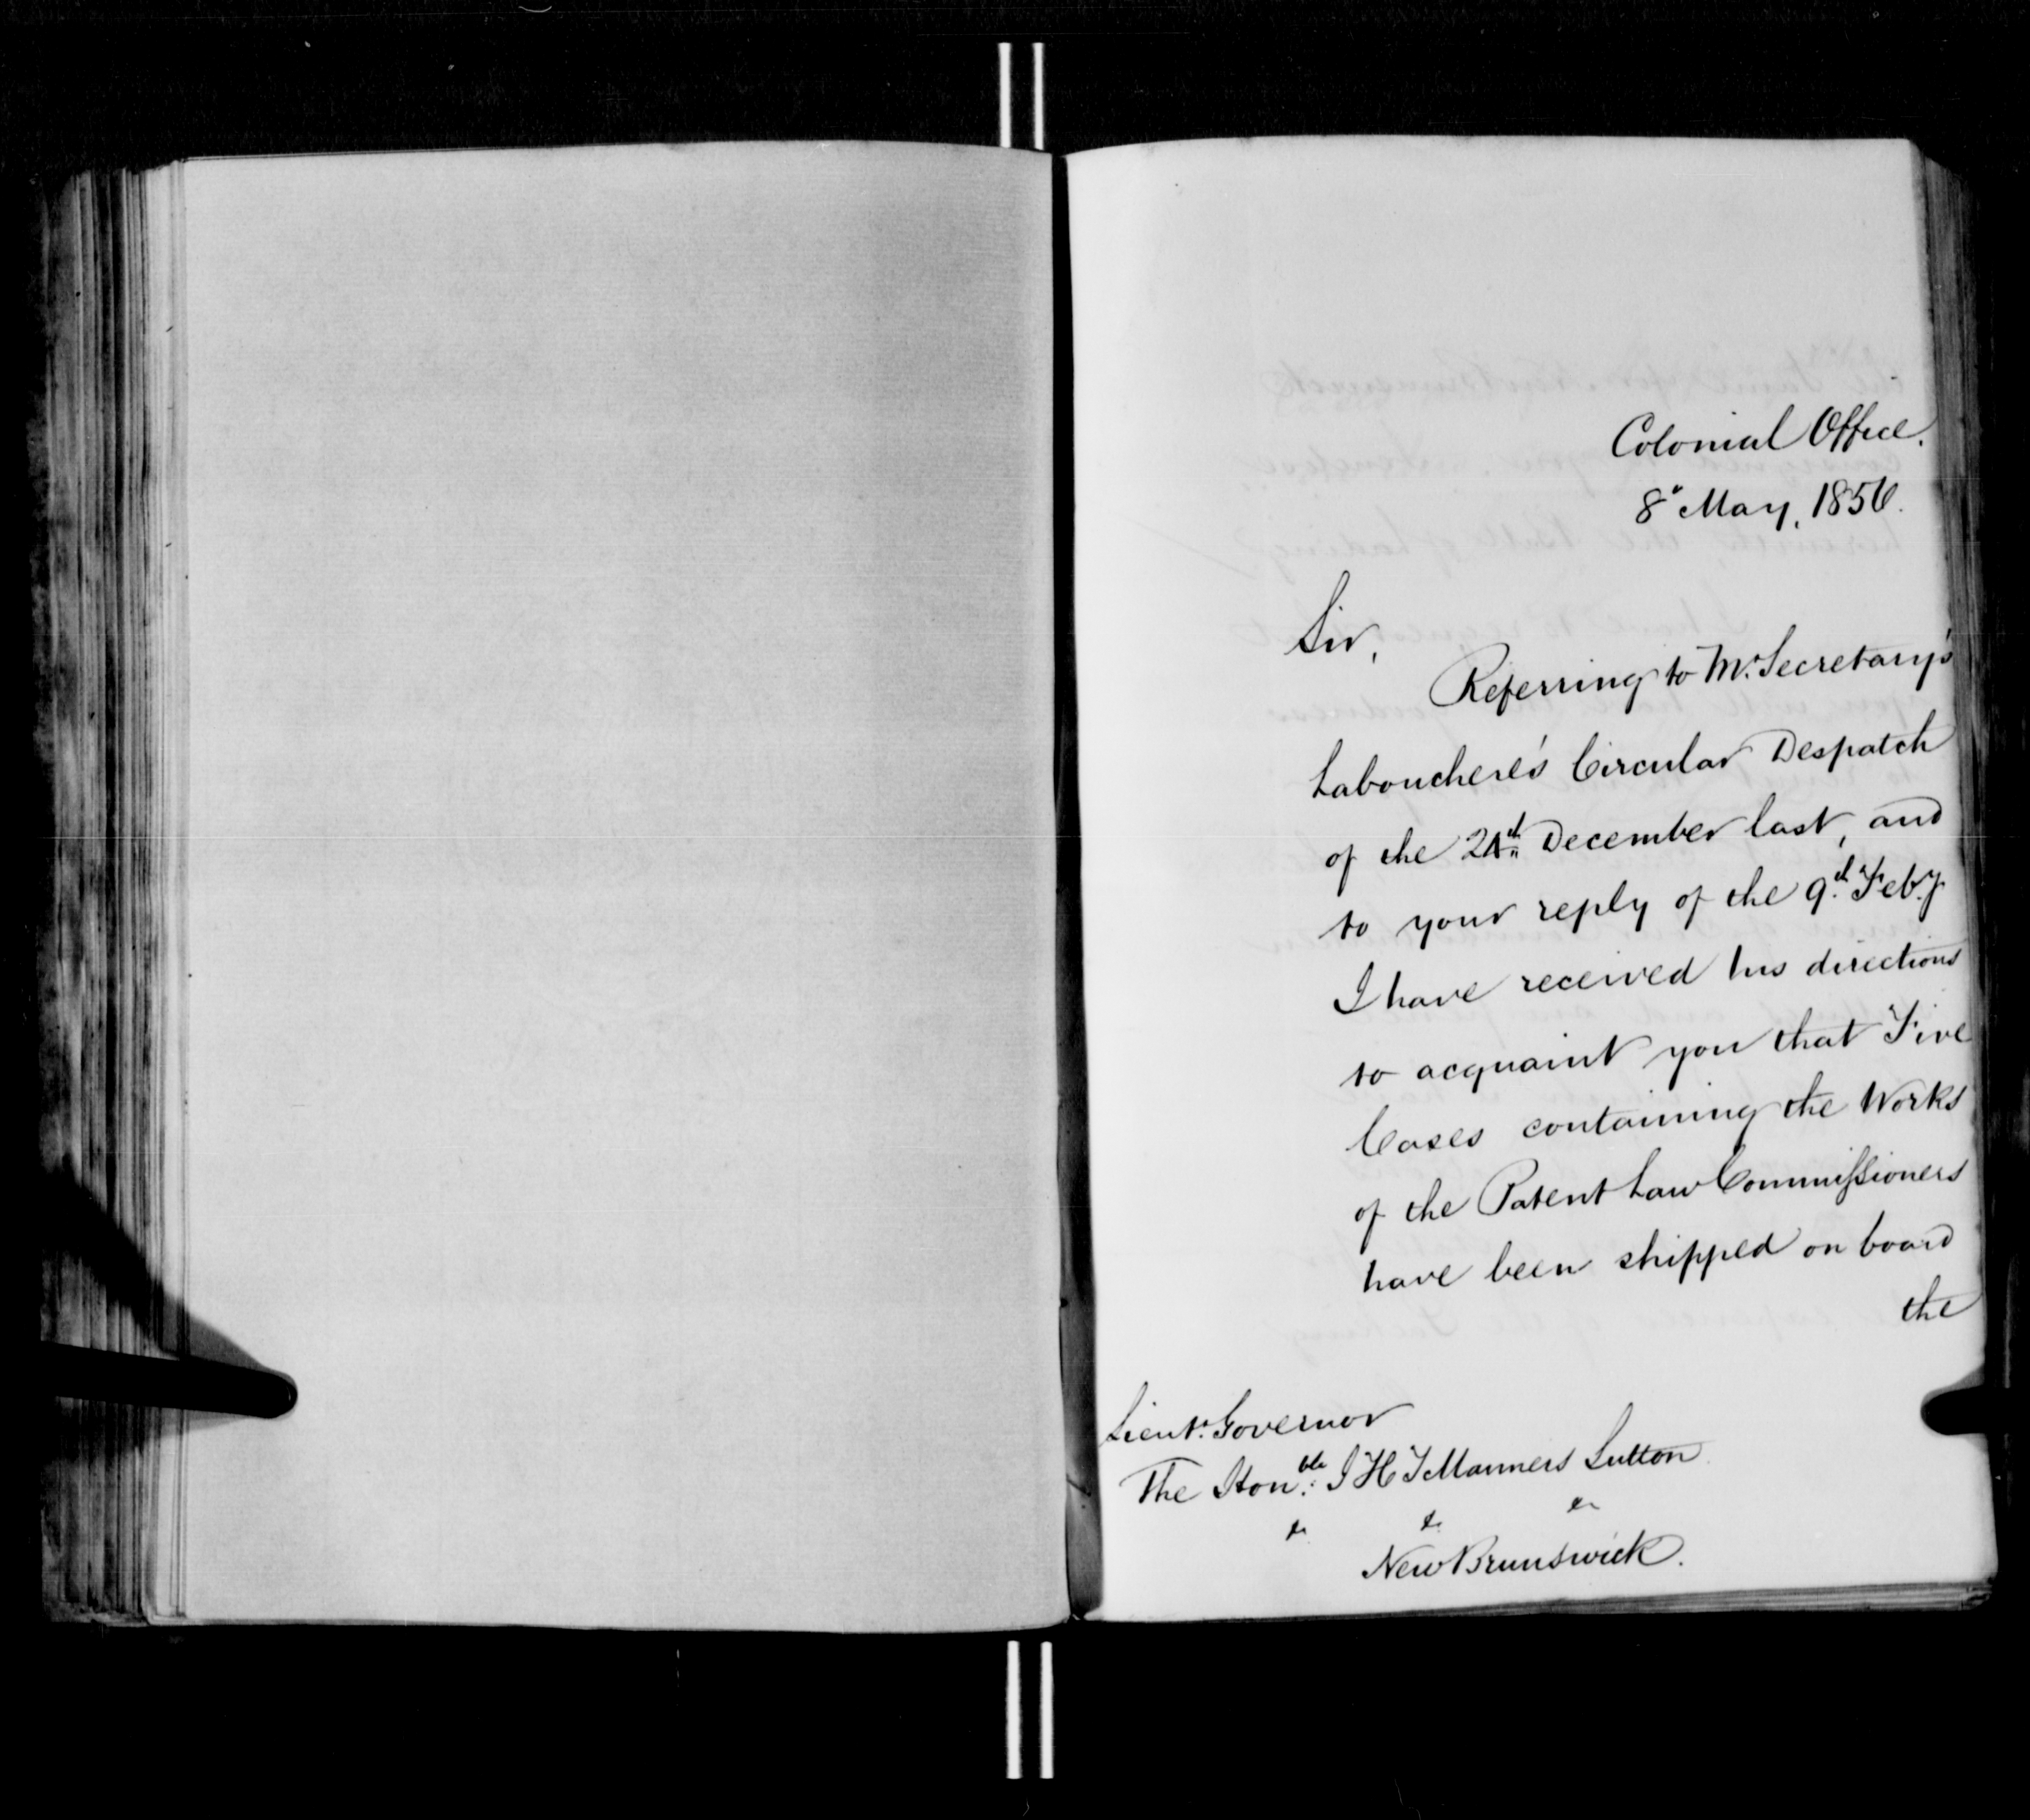 Colonial Office.
8" May, 1856.
Sir,
Referring to Mr. Secretary's
Labouchere's Circular Despatch
of the 24th December last, and
to your reply of the 9th Feby.
I have received his directions
to acquaint you that Five
Cases containing the Works
of the Patent Law Commissioners
have been shipped on board
the
Lieut. Governor
The Honble. J H T Manners Sutton
&c &c &c
New Brunswick.